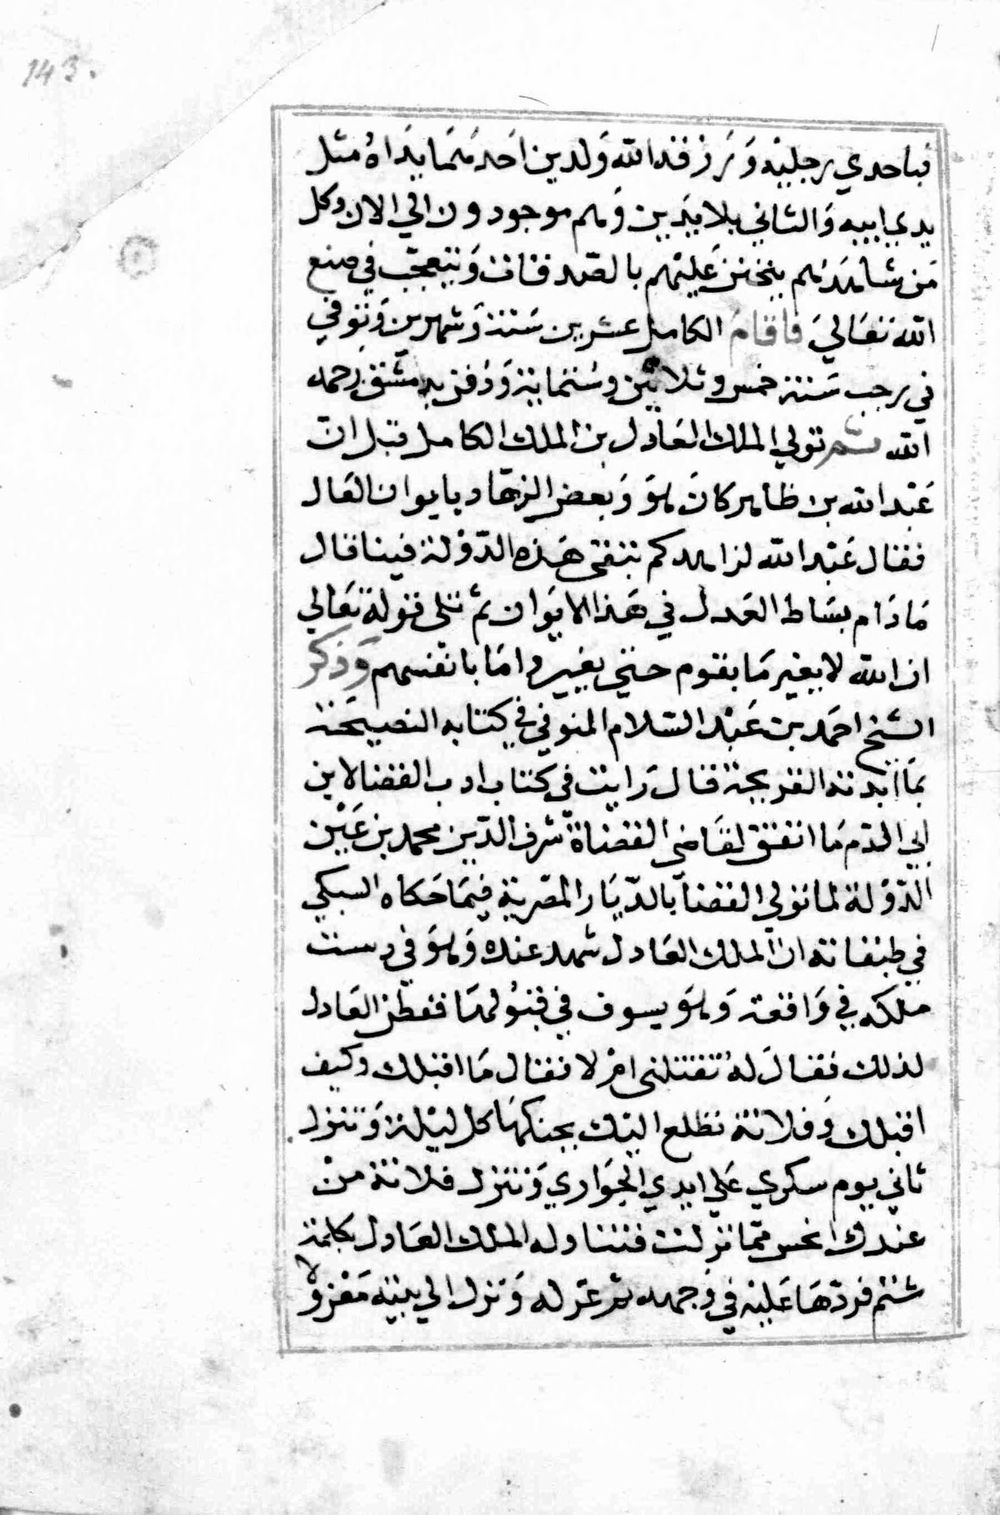 143.
فباحدي رجليه وَرَزقه الله وَلدين احَدهمَا يدَاهُ مثل
يدي ابيه وَالثاني بلا يدين وَهم موجودون الي الان وكل
مَن شاهدَهم يتحنن عَليهم بالصدقات وَيتعجّب في صنع
الله تعَاليَ فاقامَ الكامل عشرين سَنة وَشهرين وَتوفي
في رجب سَنة خمس وثلاثين وستماية وَدُفن بدمشق رحمه
الله ثم تولي الملك العَادل بن الملك الكامل قيل ان
عَبْد الله بن طاهر كانَ هوَ وَبعض الزهّاد بايوان العَال
فقال عَبْد الله لزاهدكم تبقى هَذه الدّوْلة فينا قال
مَا دَام بسَاط العَدل في هَذا الايوَان ثم تلى قولهُ تعَالى
ان الله لا يغير مَا بقوم حتي يغيروا مَا بانفسهم وَذكر
الشيخ احمَد بن عَبْد السّلام المنوفي في كتابه النصيحَة
بمَا ابدته القريحة قال رَايت في كتاب ادب القضا لابن
ابي الدّم مَا اتفق لقاضي القضاة شرف الدّين محمد بن عَيْن
الدّوْلة لما تولي القضا بالدّيَار المصْرية فيمَا حَكاه السبكي
في طبقاته ان الملك العَادل شهد عنده وَهوَ في دست
ملكه في وَاقعة وَهوَ يسوف في قبُولهَا ففطن العَادل
لذلك فقالَ لهُ تقبلني امْ لا فقال مَا اقبلك وكيف
اقبلك وَفلانة تطلع اليْك بجنكهَا كل ليْلة وَتنزل
ثاني يوم سكري عَلي ايدي الجوَاري وَتنزل فلانة منْ
عندك انحس ممّا نزلت فتناوله الملك العَادل بكلمة
شتم فردّهَا عَليْه في وَجهه ثم عزله وَنزل الي بيته مَعْزولا